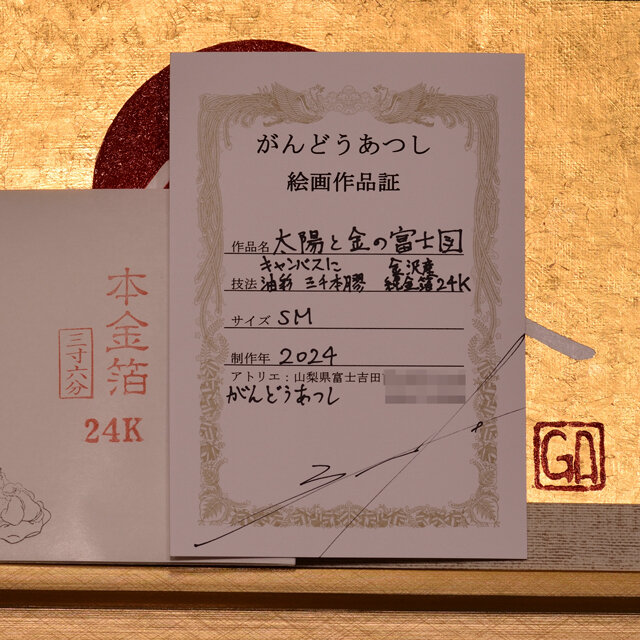 がんどうあつし
絵画作品証
作品名 太陽と金の富士図
キャンバスに 金沢産
技法 油彩 三千本膠 純金箔24K
サイズ SM
制作年 2024
アトリエ：山梨県富士吉田
がんどうあつし
本金箔
三寸六分
24K
GA